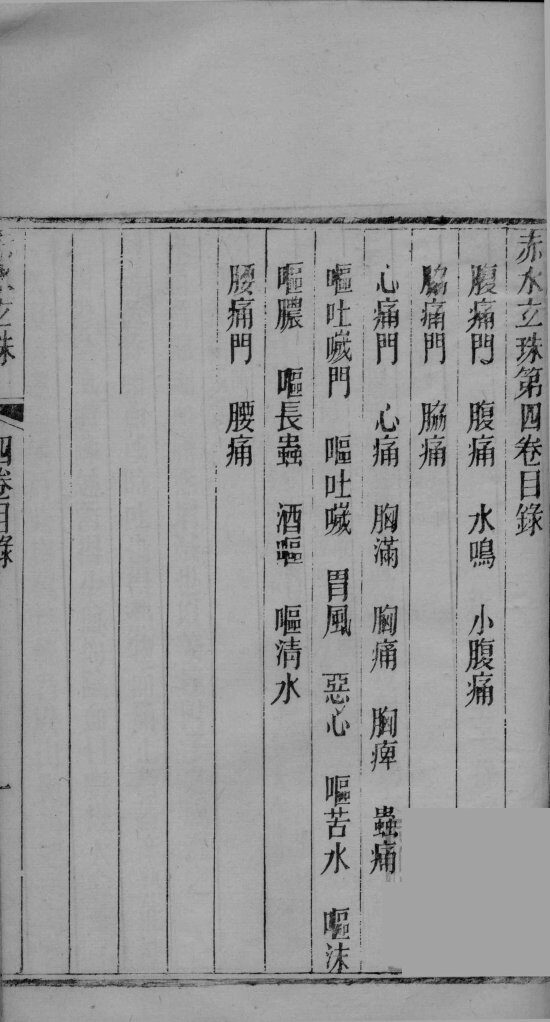 赤水立珠第四卷目錄
腹痛門 腹痛 水鳴 小腹痛
脇痛門 脇痛
心痛門 心痛 胸滿 胸痛 胸痺 蟲痛
嘔吐噦門 嘔吐噦 胃風 惡心 嘔苦水 嘔沫
嘔膿 嘔長蟲 酒嘔 嘔清水
腰痛門 腰痛
水立珠 四卷目錄 一